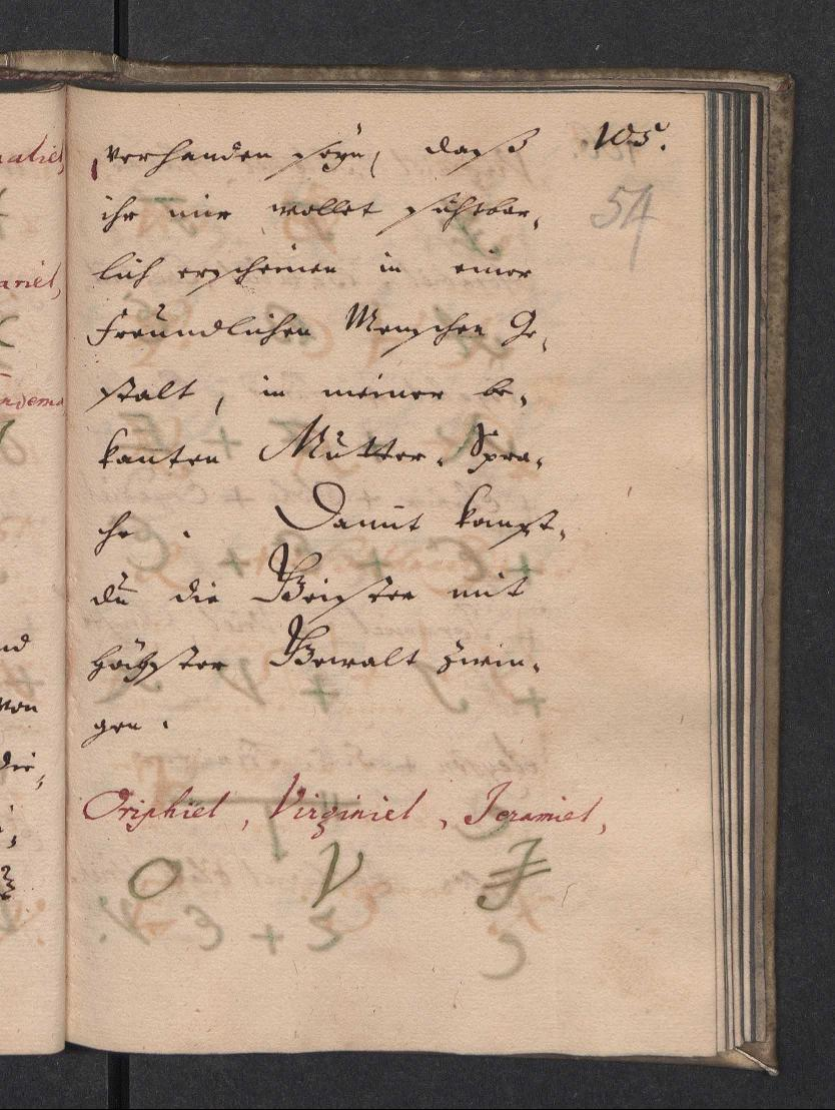 105.
54
vorhanden seyn, daß
ihr mir wollet sichtbar,
lich erscheinen in einer
freündlichen Menschen Ge,
stalt, in meiner be,
kanten Mutter-Spra,
che. Damit kanst,
du die Geister mit
höchster Gewalt zwin,
gen.
Oriphiel, Virginiel, Jeramiel,
O V J